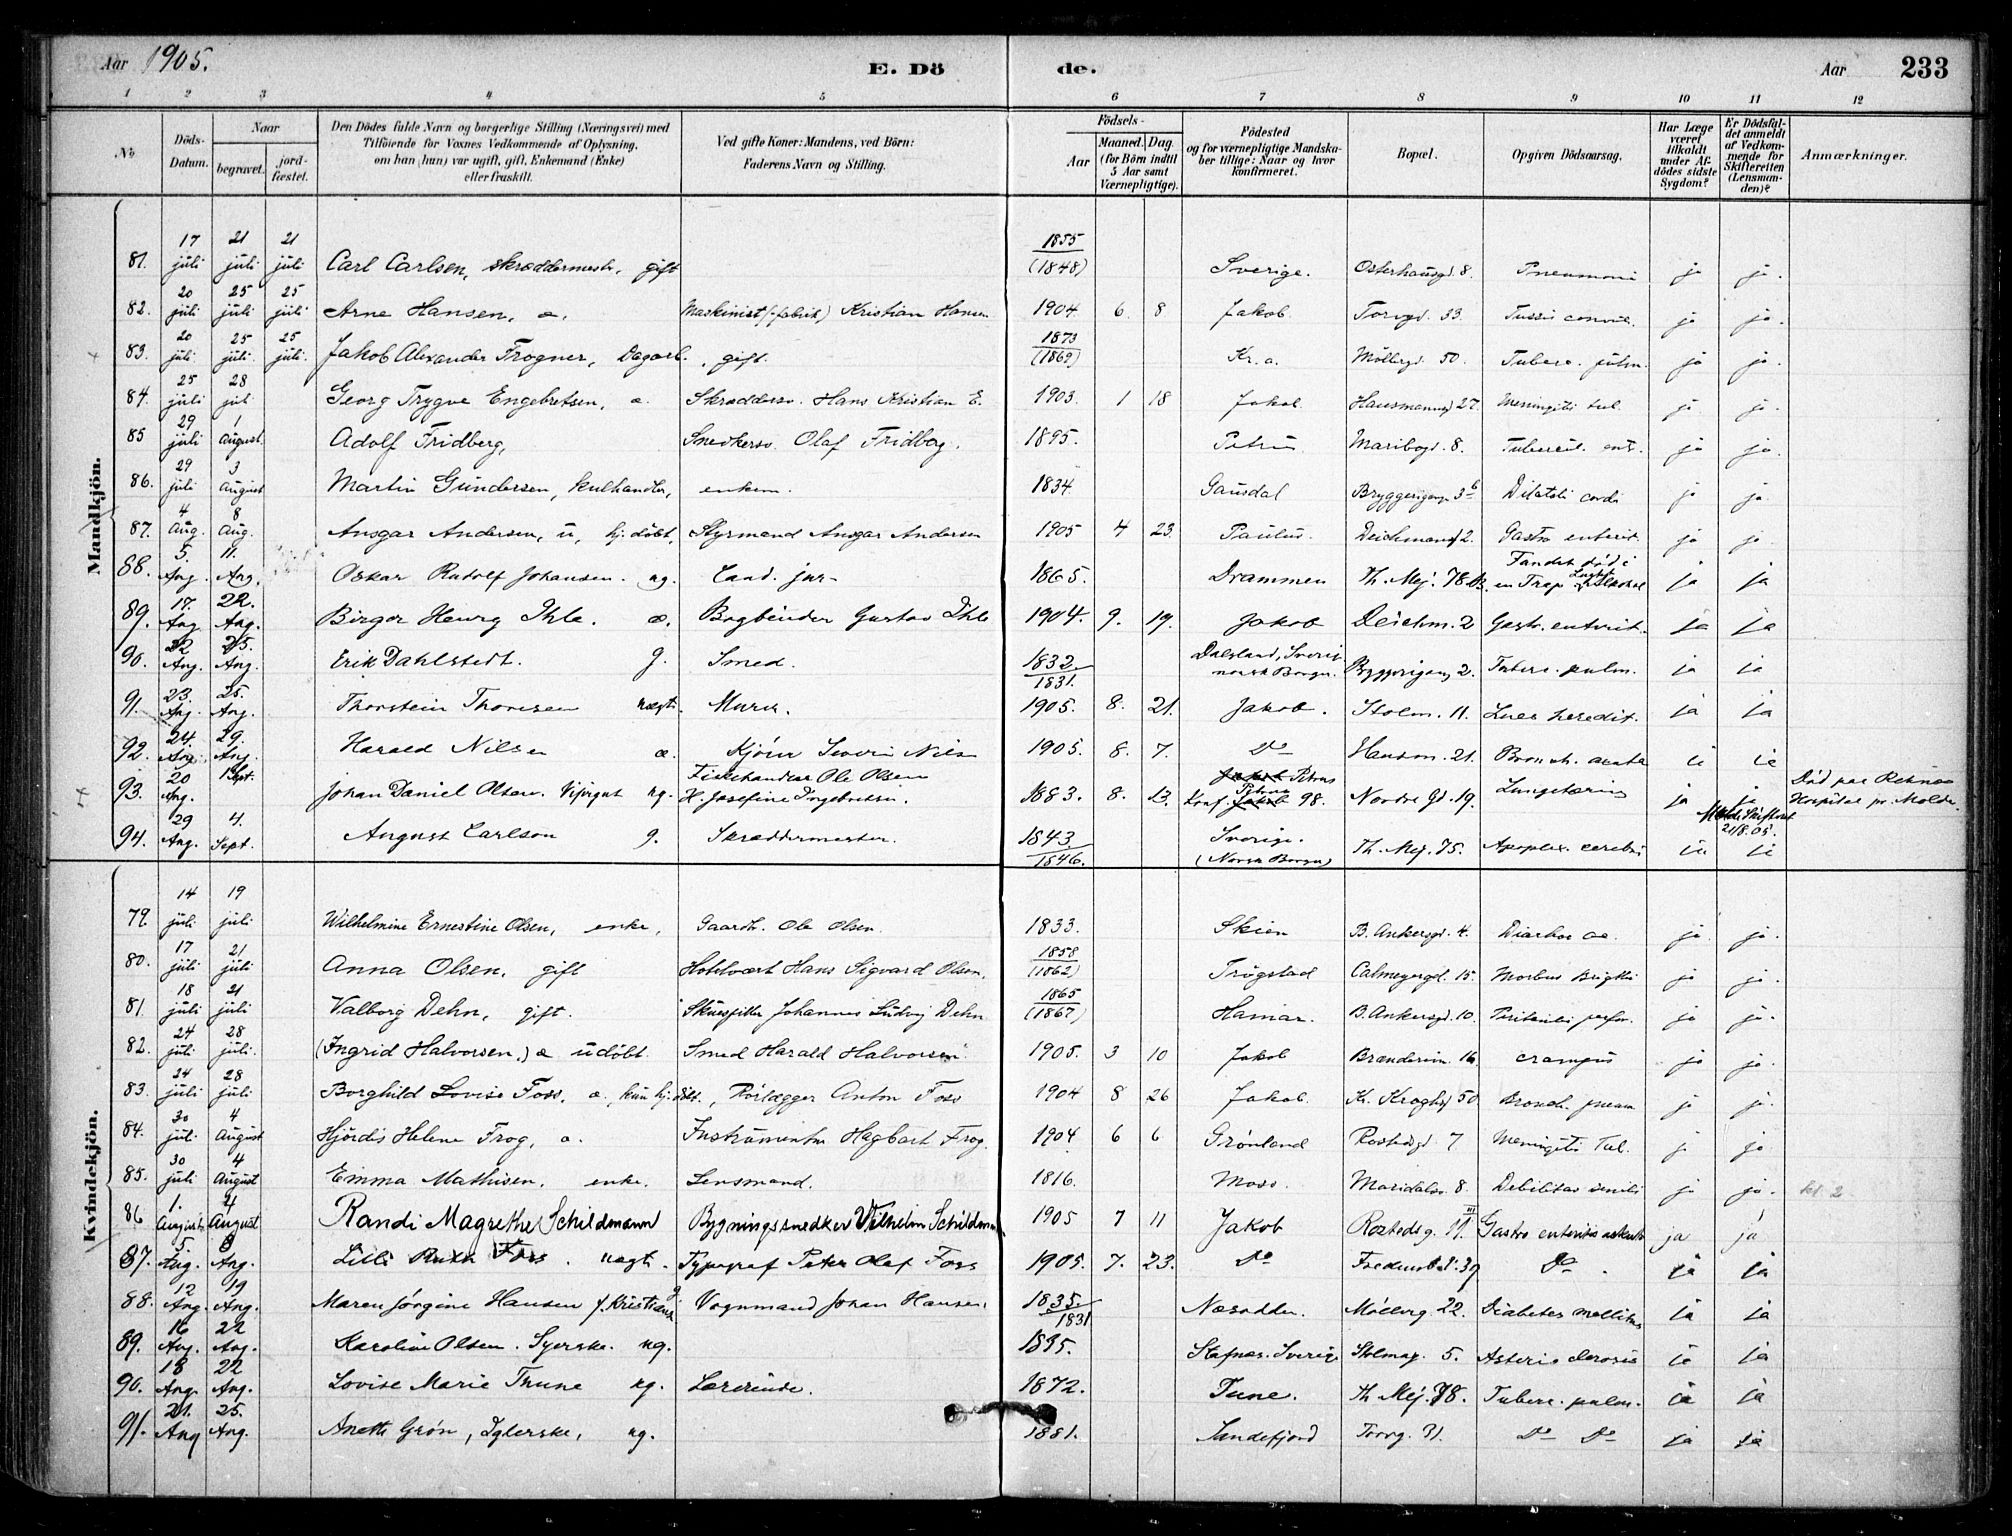 Aar 1905. E. Dö de. Aar 233
1 2 3 4 5 6 7 8 9 10 11 12
No
Döds-Datum.
Naar
begravet.
jord-fæstet.
Den Dödes fulde Navn og borgerlige Stilling (Næringsvei) med
Tilföiende for Voxnes Vedkommende af Oplysning,
om han (hun) var ugift, gift, Enkemand (Enke)
eller fraskilt.
Ved gifte Koner: Mandens, ved Börn:
Faderens Navn og Stilling.
Födsels-
Aar
Maaned. Dag.
(for Börn indtil
5 Aar samt
Værnepligtige).
Födested
og for værnepligtige Mandska-
ber tillige: Naar og hvor
konfirmeret.
Bopæl.
Opgiven Dödsaarsag.
Har Læge
været
tilkaldt
under Af-
dödes sidste
Sygdom?
Er Dödsfal-
det anmeldt
af Vedkom-
mende for
Skifteretten
(Lensman-
den)?
Anmærkninger.
Mandkjön.
81. 17 juli 21 juli 21 juli Carl Carlsen, skræddermestr. gift 1855 (1848) Sverige. Osterhausgd. 8. Pneumoni ja ja.
82. 20 juli 25 juli 25 juli Arne Hansen, æ. Maskinist (fabrik) Kristian Hansen 1904 6. 8 Jakob. Torvgd. 33. Tussis convul. ja ja.
83. 20 juli 25 juli 25 juli. Jakob Alexander Trogner, Dagarb., gift. 1873 (1869) Kr. a. Möllergd. 50. Tuberc. pulm. ja ja.
84. 25 juli 28 juli Georg Trygve Engebretsen, æ. Skræddersv. Hans Kristian E. 1903. 1 18 Jakob. Hausmannsgd 27. Meningitis tub. ja ja.
85 29 juli 1 August. Adolf Fridberg, Snedkersv. Olaf Fridberg. 1895. Petrus Maribogd. 8. Tubercul. ent. ja ja.
86. 29 juli 3 August Martin Gundersen, kulhandler, enkem. 1834. Gausdal Bryggerigangen 3b Dilatati cordis ja ja.
87. 4 Aug. 8 Aug. Ansgar Andersen, u, hj.döbt, Styrmand Ansgar Andersen 1905 4 23. Paulus. Deichmansg 2. Gastro enterit. ja ja.
88. 5. Aug. 11. Aug. Oskar Rudolf Johansen. ug. Cand. jur. 1865. Drammen Th. Mej. 78 B. Fundet död i en Trap ja ja
89. 17. Aug 22. Aug. Birger Henry Ihle. æ. Bogbinder Gustav Ihle 1904. 9. 19. Jakob Deichm. 2 Gastr. enterit. ja ja
90. 22 Aug. 25. Aug. Erik Dahlstedt. g. Smed. 1832 1831. Dalsland, Sverig norsk Borger. Bryggerigang 2. Tuberc. pulm. ja ja
91. 23. Aug. 25. Aug. Thorstein Thoresen uægt. Murer. 1905. 8. 21. Jakob. Stolm. 11. Lues heredit. ja ja
92. 24. Aug. 29. Aug. Harald Nilsen æ. Kjører Severin Nilsen 1905. 8. 7. Do Hausm. 21. Bronch. acuta ja ja
93. 20 Aug. 1 Sept. Johan Daniel Olsen. ug. Fiskehandler Ole Olsen H. Josefine Ingebretsen. 1883. 8. 13. Petrus Konf. Petrus 98. Nordre Gd. 19. Lungetæring ja ja Molde Skifteret 21/8.05. Død paa Reknes Hospital pr. Molde.
94. 29 Aug. 4. Sept. August Carlson g. Skræddermester. 1843 1846. Sverige. (Norsk Borger) Th. Mej. 75. Apoplex. cerebri ja ja
Kvindekjön.
79. 14 juli 19 juli Wilhelmine Ernestine Olsen, enke, Gaardb. Ole Olsen. 1833. Skien B. Ankersgd. 4. Diarhoe ac. ja ja.
80. 17 juli 21 juli Anna Olsen, gift Hotelvært Hans Sigvard Olsen. 1858 (1862) Trögstad Calmeyergd. 15. Morbus Brigthii ja ja.
81. 18 juli 21 juli Valborg Dehn, gift. Skuespiller Johannes Ludvig Dehn 1865 (1867) Hamar. B. Ankersgd. 10. Peritonitis perfor. ja ja.
82. 24 juli 28 juli. (Ingrid Halvorsen,) æ udöbt. Smed Harald Halvorsen. 1905. 3 10 Jakob Brænderien. 16. crampus ja ja.
83. 24 juli 28 juli Borghild Lovise Foss, æ, kun hj.döbt., Rörlægger Anton Foss 1904 8 26 Jakob. Kr. Kroghsgd 50 Bronch. pneum ja ja.
84. 30 juli 4 August Hjördis Helene Frog, æ. Instrumentm Hagbart Frog. 1904 6 6 Grönland Rostedsgd. 7. Meningitis Tub. ja ja.
85. 30 juli 4 August Emma Mathisen, enke. Lensmand. 1816. Moss. Maridalsv. 8. Debilitas senilis ja ja. kl. 2
86 1. August 4 August Randi Magrethe Schildmann Bygningssnedker Vilhelm Schildmann 1905 7 11 Jakob Rostedsg. 11. III Gastro enteritis ackuta ja ja
87. 5 Aug. 8 Aug. Lilli Ruth Foss. uægt. Typograf Peter Olaf Foss 1905. 7. 23. Do Fredensbv. 39 Do. ja ja
88. 12 Aug. 19 Aug. Maren Jörgine Hansen f. Kristians g Vognmand Johan Hansen. 1835. 1831 Næsodden. Möllerg. 22. Diabetes mellitus ja ja
89. 16 Aug. 22 Aug. Karoline Olsen. Syerske. ug. 1835. Stafnæs. Sverige Stolmag. 5. Asterio sclerosis ja ja
90. 18 Aug. 22 Aug. Lovise Marie Thune ug. Lærerinde. 1872. Tune. Th. Mej. 78. Tuberc. pulm. ja ja
91. 21. Aug 25. Aug. Anette Grön, Sylerske, ug. 1881. Sandefjord Torvg. 31. Do Do ja ja